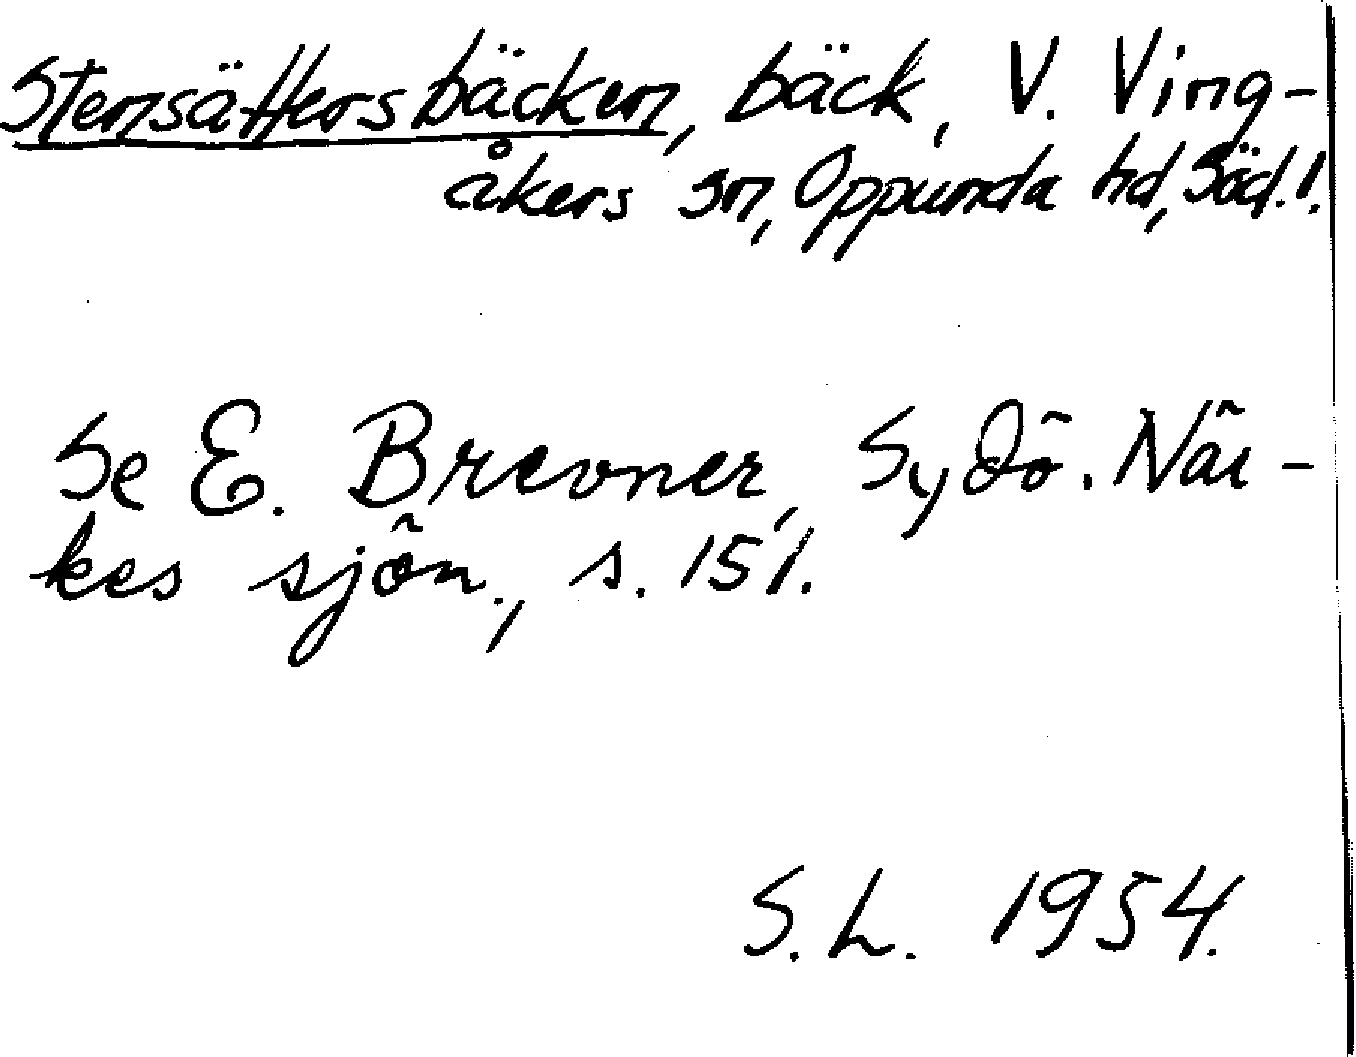 Stensättersbäcken, bäck, V. Ving-
åkers sn, Oppunda hd, Söd.l.
Se E. Brevner, Sydö. När-
kes sjön., s. 151.
S.L. 1954.